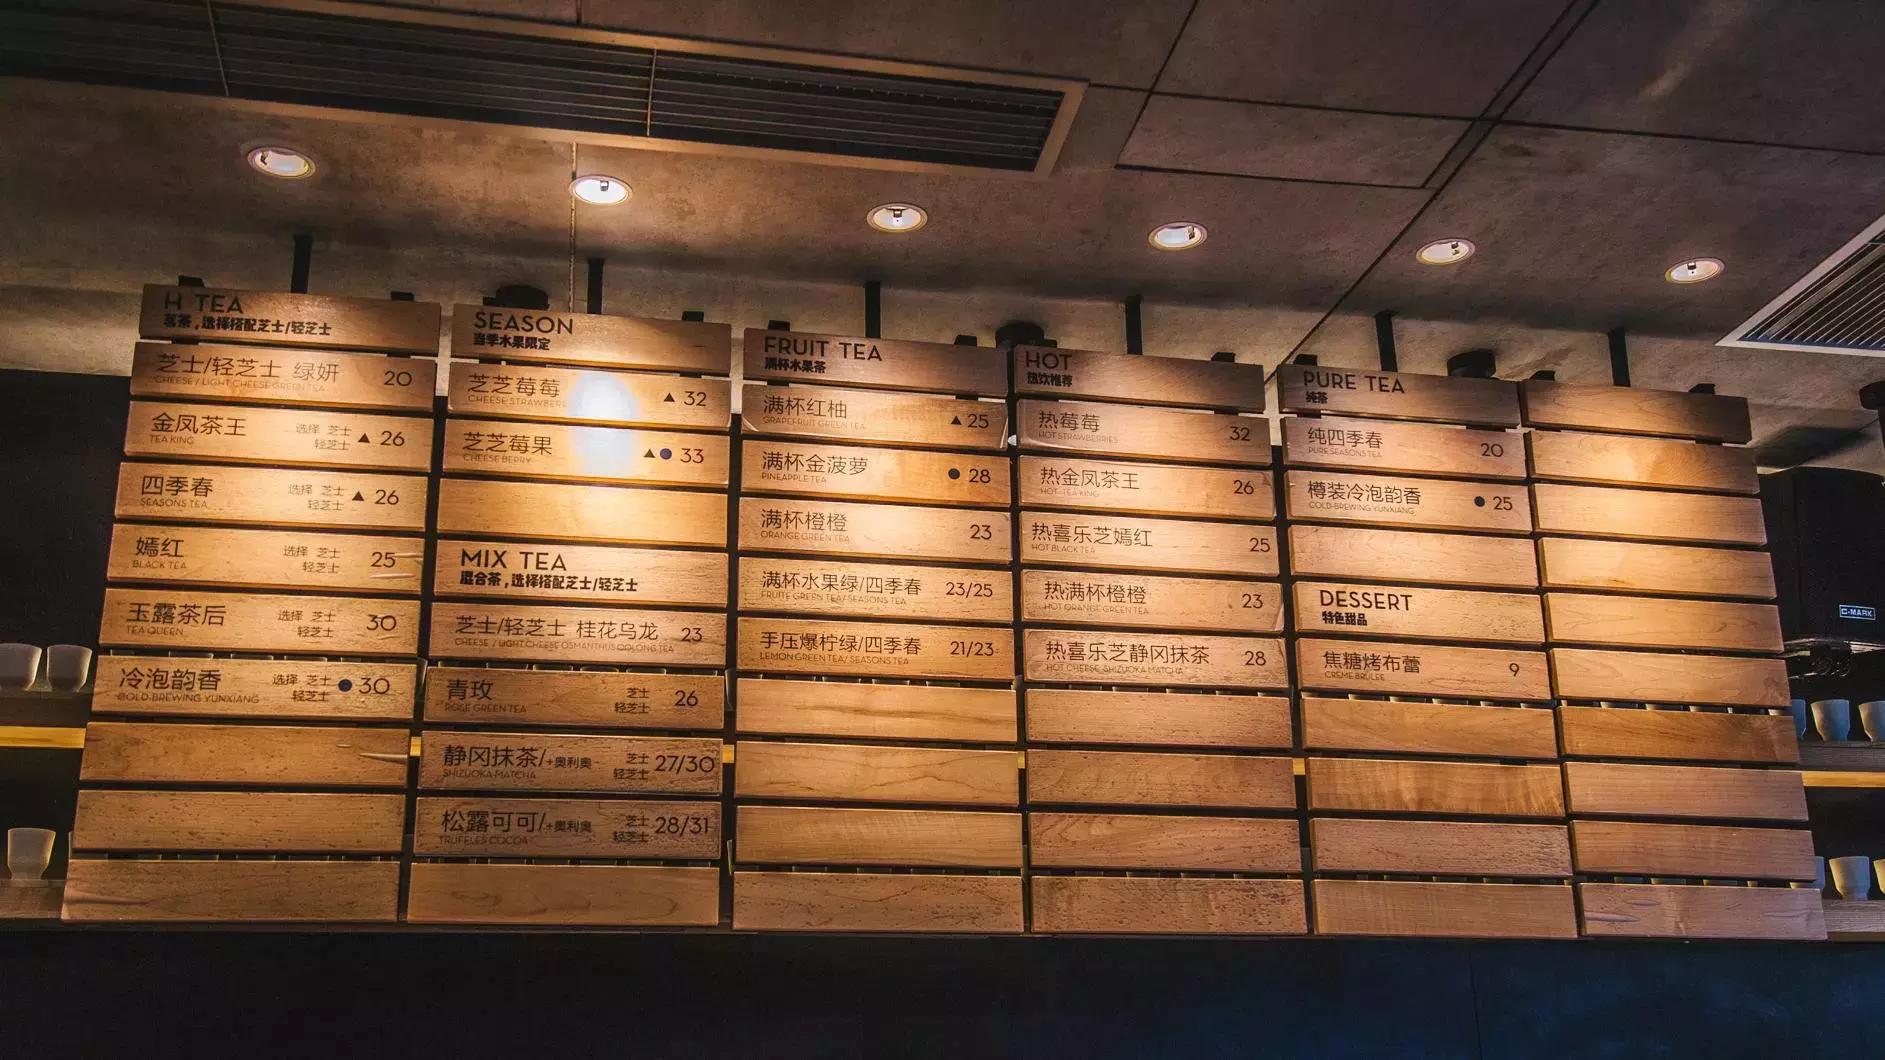 H TEA
茗茶，选择搭配芝士/轻芝士
芝士/轻芝士 绿妍 20
CHEESE / LIGHT CHEESE GREEN TEA
金凤茶王 选择 芝士 轻芝士 ▲ 26
TEA KING
四季春 选择 芝士 轻芝士 ▲ 26
SEASONS TEA
嫣红 选择 芝士 轻芝士 25
BLACK TEA
玉露茶后 选择 芝士 轻芝士 30
TEA QUEEN
冷泡韵香 选择 芝士 轻芝士 ● 30
COLD-BREWING YUNXIANG
SEASON
当季水果限定
芝芝莓莓 ▲ 32
CHEESE STRAWBERR
芝芝莓果 ▲● 33
CHEESE BERRY
MIX TEA
混合茶，选择搭配芝士/轻芝士
芝士/轻芝士 桂花乌龙 23
CHEESE / LIGHT CHEESE OSMANTHUS OOLONG TEA
青玫 芝士 轻芝士 26
ROSE GREEN TEA
静冈抹茶/+奥利奥 芝士 轻芝士 27/30
SHIZUOKA MATCHA
松露可可/+奥利奥 芝士 轻芝士 28/31
TRUFFLES COCOA
FRUIT TEA
满杯水果茶
满杯红柚 ▲ 25
GRAPEFRUIT GREEN TEA
满杯金菠萝 ● 28
PINEAPPLE TEA
满杯橙橙 23
ORANGE GREEN TEA
满杯水果绿/四季春 23/25
FRUITE GREEN TEA/ SEASONS TEA
手压爆柠绿/四季春 21/23
LEMON GREEN TEA/ SEASONS TEA
HOT
热饮推荐
热莓莓 32
HOT STRAWBERRIES
热金凤茶王 26
HOT TEA KING
热喜乐芝嫣红 25
HOT BLACK TEA
热满杯橙橙 23
HOT ORANGE GREEN TEA
热喜乐芝静冈抹茶 28
HOT CHEESE SHIZUOKA MATCHA
PURE TEA
纯茶
纯四季春 20
PURE SEASONS TEA
樽装冷泡韵香 ● 25
COLD-BREWING YUNXIANG
DESSERT
特色甜品
焦糖烤布蕾 9
CREME BRULEE
C-MARK